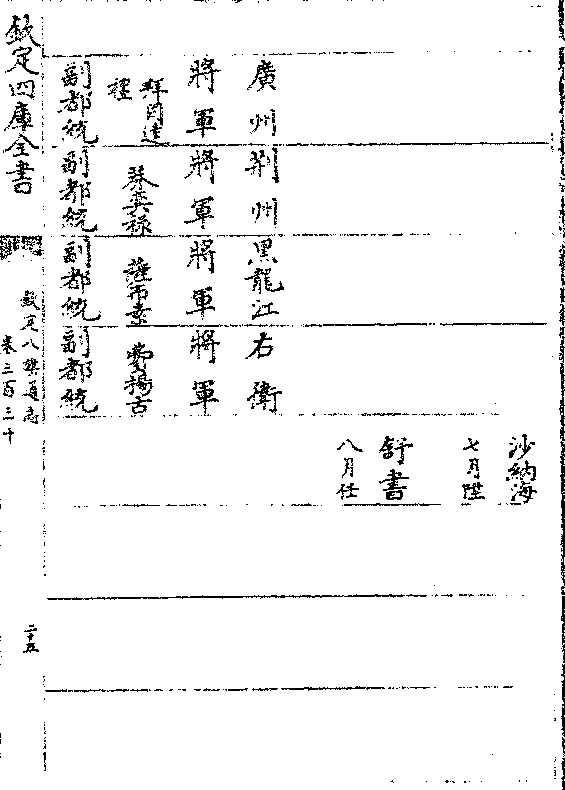 沙納海
七月陞
舒書
八月任
廣州
荆州
黑龍江
右衛
將軍
將軍
將軍
將軍
拜因達
奕祿
薩布素
費揚古
副都統
副都統
副都統
副都統
欽定四庫全書
欽定八旗通志
卷三百三十
二十五